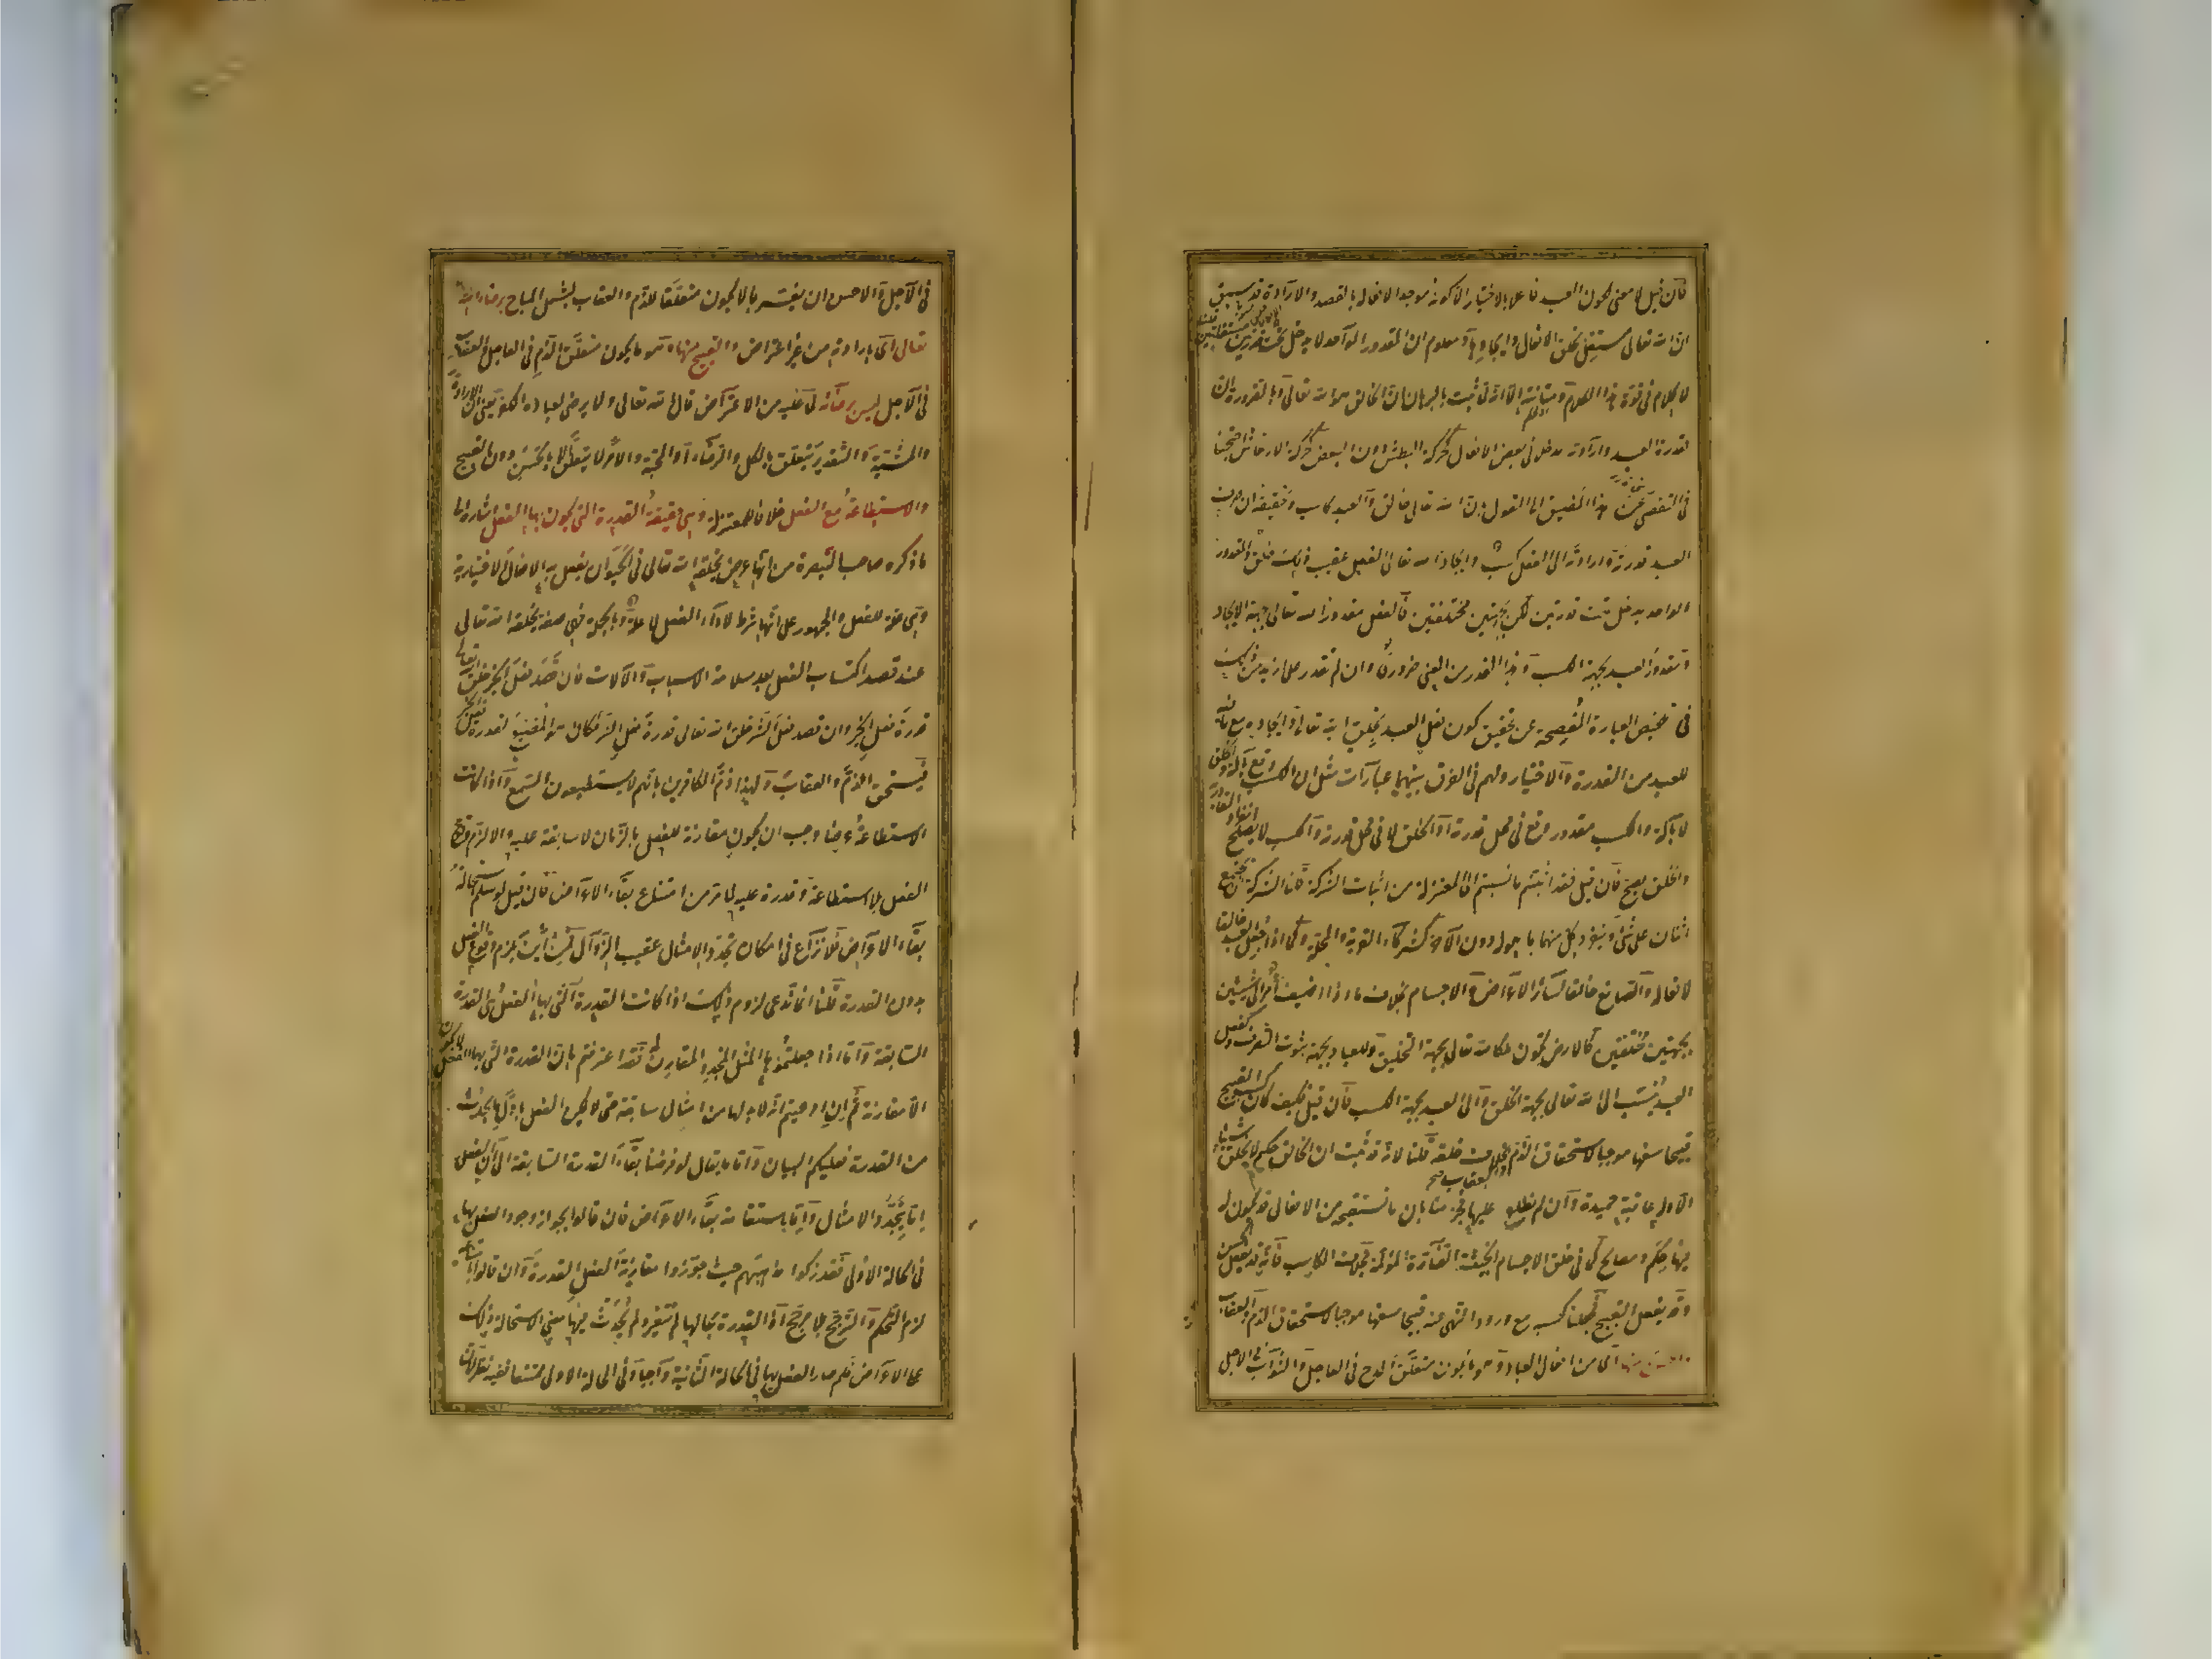 فان قيل لا معنى لكون العبد فاعلا بالاختيار الا كونه موجدا لافعاله بالقصد والارادة وقد سبق
ان الله تعالى مستقل بخلق الافعال وايجادها ومعلوم ان المقدور الواحد لا يدخل تحت قدرتين مستقلتين قلنا
لا كلام في قوة هذا الكلام ومتانته الا انه لما ثبت بالبرهان ان الخالق هو الله تعالى وبالضرورة ان
لقدرة العبد وارادته مدخلا في بعض الافعال كحركة البطش دون البعض كحركة الارتعاش احتجنا
في التفصي عن هذا المضيق الى القول بان الله تعالى خالق والعبد كاسب وتحقيقه ان صرف
العبد قدرته وارادته الى الفعل كسب وايجاد الله تعالى الفعل عقيب ذلك خلق والمقدور
الواحد يدخل تحت قدرتين لكن بجهتين مختلفتين فالفعل مقدور الله تعالى بجهة الايجاد
ومقدور العبد بجهة الكسب وهذا القدر من المعنى ضروري وان لم نقدر على ازيد من ذلك
في تلخيص العبارة المفصحة عن تحقيق كون فعل العبد بخلق الله تعالى وايجاده مع ما فيه
للعبد من القدرة والاختيار ولهم في الفرق بينهما عبارات مثل ان الكسب وقع بآلة والخلق
لا بآلة والكسب مقدور وقع في محل قدرته والخلق لا في محل قدرته والكسب لا يصح انفراد القادر به
والخلق يصح فان قيل فقد اثبتم ما نسبتم الى المعتزلة من اثبات الشركة قلنا الشركة ان يجتمع
اثنان على شئ وينفرد كل منهما بما هو له دون الآخر كشركاء القرية والمحلة وكما اذا جعل العبد خالقا
لافعاله والصانع خالقا لسائر الاعراض والاجسام بخلاف ما اذا اضيف امر الى شيئين
بجهتين مختلفتين كالارض تكون ملكا لله تعالى بجهة التخليق وللعباد بجهة ثبوت التصرف وكفعل
العبد ينسب الى الله تعالى بجهة الخلق والى العبد بجهة الكسب فان قيل فكيف كان كسب القبيح
قبيحا سفها موجبا لاستحقاق الذم والعقاب بخلاف خلقه قلنا لانه قد ثبت ان الخالق حكيم لا يخلق شيئا
الا وله عاقبة حميدة وان لم نطلع عليها فجزمنا بان ما نستقبحه من الافعال قد يكون له
فيها حكم ومصالح كما في خلق الاجسام الخبيثة الضارة المؤلمة بخلاف الكاسب فانه قد يفعل الحسن
وقد يفعل القبيح فجعلنا كسبه مع ورود النهي عنه قبيحا سفها موجبا لاستحقاق الذم والعقاب
والحسن منها اى من افعال العباد وهو ما يكون متعلق المدح في العاجل والثواب في الآجل
في الآجل والاحسن ان يفسر بما لا يكون متعلقا للذم والعقاب ليشمل المباح برضاء الله
تعالى اى بارادته من غير اعتراض والقبيح منها وهو ما يكون متعلق الذم في العاجل والعقاب
في الآجل ليس برضائه لما عليه من الاعتراض قال الله تعالى ولا يرضى لعباده الكفر يعنى ان الارادة
والمشية والتقدير يتعلق بالكل والرضاء والمحبة والامر لا يتعلق الا بالحسن دون القبيح
والاستطاعة مع الفعل خلافا للمعتزلة وهي حقيقة القدرة التي يكون بها الفعل اشارة الى
ما ذكره صاحب التبصرة من انها عرض يخلقه الله تعالى في الحيوان يفعل به الافعال الاختيارية
وهي علة للفعل والجمهور على انها شرط لاداء الفعل لا علة وبالجملة هي صفة يخلقه الله تعالى
عند قصد اكتساب الفعل بعد سلامة الاسباب والآلات فان قصد فعل الخير خلق الله تعالى
قدرة فعل الخير وان قصد فعل الشر خلق الله تعالى قدرة فعل الشر فكان هو المضيع لقدرة فعل الخير
فيستحق الذم والعقاب ولهذا ذم الكافرين بانهم لا يستطيعون السمع واذا كانت
الاستطاعة عرضا وجب ان يكون مقارنة للفعل بالزمان لا سابقة عليه والا لزم وقوع
الفعل بلا استطاعة وقدرة عليه لما مر من امتناع بقاء الاعراض فان قيل لو سلم استحالة
بقاء الاعراض فلا نزاع في امكان تجدد الامثال عقيب الزوال فمن اين يلزم وقوع الفعل
بدون القدرة قلنا انما ندعى لزوم ذلك اذا كانت القدرة التي بها الفعل هي القدرة
السابقة واما اذا جعلتموها المثل المتجدد المقارن فقد اعترفتم بان القدرة التي بها الفعل لا يكون
الا مقارنة ثم ان ادعيتم انه لا بد لها من امثال سابقة حتى لا يمكن الفعل باول ما يحدث
من القدرة فعليكم البيان واما ما يقال لو فرضنا بقاء القدرة السابقة الى آن الفعل
اما بتجدد الامثال واما باستقامة بقاء الاعراض فان قالوا بجواز وجود الفعل بها
في الحالة الاولى فقد تركوا مذهبهم حيث جوزوا مقارنة الفعل القدرة وان قالوا بامتناعه
لزم التحكم والترجيح بلا مرجح اذ القدرة بحالها لم تتغير ولم يحدث فيها معنى لاستحالة ذلك
على الاعراض فلم صار الفعل بها في الحالة الثانية واجبا وفي الحالة الاولى ممتنعا ففيه نظر لان